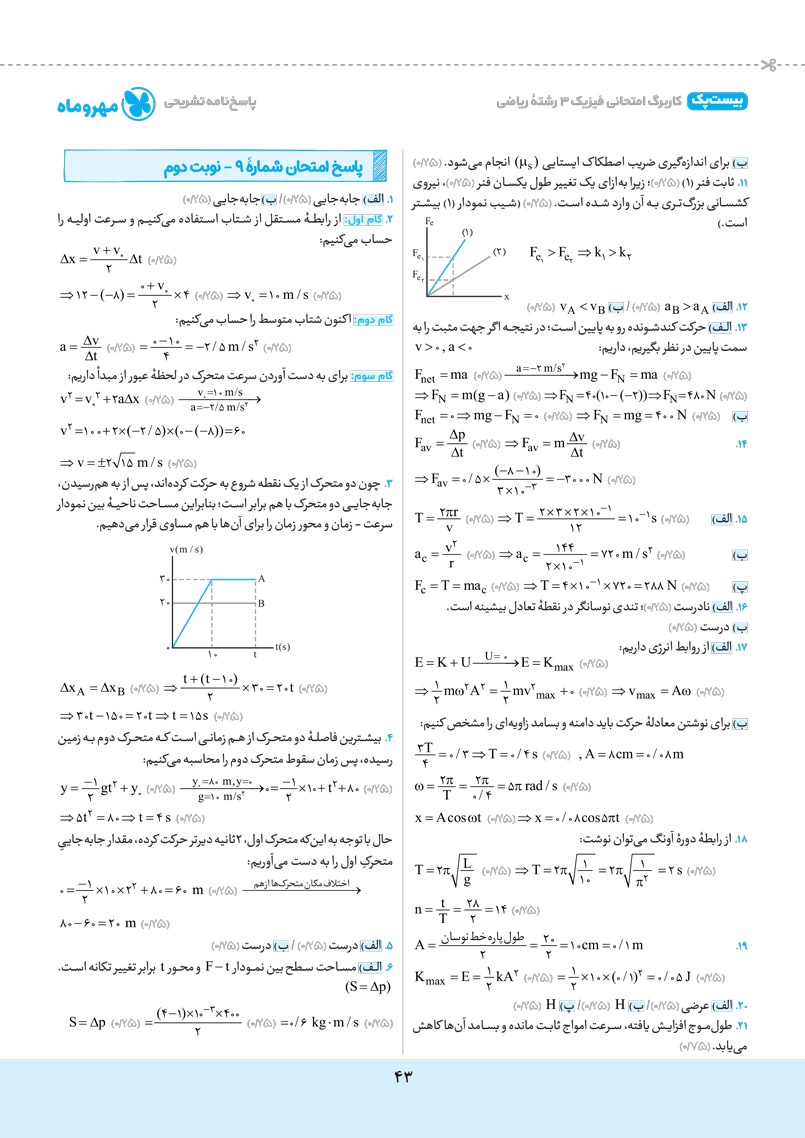 بیست‌پک کاربرگ امتحانی فیزیک ۳ رشتهٔ ریاضی
پاسخ‌نامه تشریحی مهروماه
ب) برای اندازه‌گیری ضریب اصطکاک ایستایی (μs) انجام می‌شود. (۰/۲۵)
۱۱. ثابت فنر (۱) (۰/۲۵)؛ زیرا به‌ازای یک تغییر طول یکسان فنر (۰/۲۵)، نیروی
کشسانی بزرگ‌تری به آن وارد شده است. (۰/۲۵) (شیب نمودار (۱) بیشتر
است.)
Fe
(۱)
(۲)
Fe₁
Fe₂
x
Fe₁ > Fe₂ ⇒ k₁ > k₂
۱۲. الف) aB > aA (۰/۲۵) / ب) vA < vB (۰/۲۵)
۱۳. الف) حرکت کندشونده رو به پایین است؛ در نتیجه اگر جهت مثبت را به
سمت پایین در نظر بگیریم، داریم: v > ۰, a < ۰
Fnet = ma (۰/۲۵) a=−۲ m/s² → mg − FN = ma (۰/۲۵)
⇒ FN = m(g − a) (۰/۲۵) ⇒ FN = ۴۰(۱۰ − (−۲)) ⇒ FN = ۴۸۰ N (۰/۲۵)
ب) Fnet = ۰ ⇒ mg − FN = ۰ (۰/۲۵) ⇒ FN = mg = ۴۰۰ N (۰/۲۵)
۱۴. Fav = Δp/Δt (۰/۲۵) ⇒ Fav = m Δv/Δt (۰/۲۵)
⇒ Fav = ۰/۵ × (−۸−۱۰)/(۳×۱۰⁻³) = −۳۰۰۰ N (۰/۲۵)
۱۵. الف) T = ۲πr/v (۰/۲۵) ⇒ T = (۲×۳×۲×۱۰⁻¹)/۱۲ = ۱۰⁻¹ s (۰/۲۵)
ب) ac = v²/r (۰/۲۵) ⇒ ac = ۱۴۴/(۲×۱۰⁻¹) = ۷۲۰ m/s² (۰/۲۵)
پ) Fc = T = mac (۰/۲۵) ⇒ T = ۴×۱۰⁻¹×۷۲۰ = ۲۸۸ N (۰/۲۵)
۱۶. الف) نادرست (۰/۲۵)؛ تندی نوسانگر در نقطهٔ تعادل بیشینه است.
ب) درست (۰/۲۵)
۱۷. الف) از روابط انرژی داریم:
E = K + U U=۰ → E = Kmax (۰/۲۵)
⇒ ۱/۲ mω²A² = ۱/۲ mv²max + ۰ (۰/۲۵) ⇒ vmax = Aω (۰/۲۵)
ب) برای نوشتن معادلهٔ حرکت باید دامنه و بسامد زاویه‌ای را مشخص کنیم:
۳T/۴ = ۰/۳ ⇒ T = ۰/۴ s (۰/۲۵) , A = ۸cm = ۰/۰۸m
ω = ۲π/T = ۲π/۰/۴ = ۵π rad/s (۰/۲۵)
x = A cos ωt (۰/۲۵) ⇒ x = ۰/۰۸ cos ۵πt (۰/۲۵)
۱۸. از رابطهٔ دورهٔ آونگ می‌توان نوشت:
T = ۲π√(L/g) (۰/۲۵) ⇒ T = ۲π√(۱/۱۰) = ۲π√(۱/π²) = ۲ s (۰/۲۵)
n = t/T = ۲۸/۲ = ۱۴ (۰/۲۵)
۱۹. A = طول پاره‌خط نوسان/۲ = ۲۰/۲ = ۱۰cm = ۰/۱m
Kmax = E = ۱/۲ kA² (۰/۲۵) = ۱/۲ × ۱۰ × (۰/۱)² = ۰/۰۵ J (۰/۲۵)
۲۰. الف) عرضی (۰/۲۵) / ب) H (۰/۲۵) / پ) H (۰/۲۵)
۲۱. طول‌موج افزایش یافته، سرعت امواج ثابت مانده و بسامد آن‌ها کاهش
می‌یابد. (۰/۷۵)
پاسخ امتحان شمارهٔ ۹ - نوبت دوم
۱. الف) جابه‌جایی (۰/۲۵) / ب) جابه‌جایی (۰/۲۵)
۲. گام اول: از رابطهٔ مستقل از شتاب استفاده می‌کنیم و سرعت اولیه را
حساب می‌کنیم:
Δx = (v + v₀)/۲ Δt (۰/۲۵)
⇒ ۱۲ − (−۸) = (۰ + v₀)/۲ × ۴ (۰/۲۵) ⇒ v₀ = ۱۰ m/s (۰/۲۵)
گام دوم: اکنون شتاب متوسط را حساب می‌کنیم:
a = Δv/Δt (۰/۲۵) = (۰−۱۰)/۴ = −۲/۵ m/s² (۰/۲۵)
گام سوم: برای به دست آوردن سرعت متحرک در لحظهٔ عبور از مبدأ داریم:
v² = v₀² + ۲aΔx (۰/۲۵) v₀=۱۰ m/s, a=−۲/۵ m/s² →
v² = ۱۰۰ + ۲×(−۲/۵)×(۰−(−۸)) = ۶۰
⇒ v = ±۲√۱۵ m/s (۰/۲۵)
۳. چون دو متحرک از یک نقطه شروع به حرکت کرده‌اند، پس از به هم‌رسیدن،
جابه‌جایی دو متحرک با هم برابر است؛ بنابراین مساحت ناحیهٔ بین نمودار
سرعت - زمان و محور زمان را برای آن‌ها با هم مساوی قرار می‌دهیم.
v(m/s)
۳۰ A
۲۰ B
۰ ۱۰ t t(s)
ΔxA = ΔxB (۰/۲۵) ⇒ (t + (t − ۱۰))/۲ × ۳۰ = ۲۰t (۰/۲۵)
⇒ ۳۰t − ۱۵۰ = ۲۰t ⇒ t = ۱۵s (۰/۲۵)
۴. بیشترین فاصلهٔ دو متحرک از هم زمانی است که متحرک دوم به زمین
رسیده، پس زمان سقوط متحرک دوم را محاسبه می‌کنیم:
y = −۱/۲ gt² + y₀ (۰/۲۵) y₀=۸۰ m, y=۰, g=۱۰ m/s² → ۰ = −۱/۲ × ۱۰ + t² + ۸۰ (۰/۲۵)
⇒ ۵t² = ۸۰ ⇒ t = ۴ s (۰/۲۵)
حال با توجه به این‌که متحرک اول، ۲ ثانیه دیرتر حرکت کرده، مقدار جابه‌جاییِ
متحرکِ اول را به دست می‌آوریم:
۰ = −۱/۲ × ۱۰ × ۲² + ۸۰ = ۶۰ m (۰/۲۵) اختلاف مکان متحرک‌ها از هم →
۸۰ − ۶۰ = ۲۰ m (۰/۲۵)
۵. الف) درست (۰/۲۵) / ب) درست (۰/۲۵)
۶. الف) مساحت سطح بین نمودار F − t و محور t برابر تغییر تکانه است.
(S = Δp)
S = Δp (۰/۲۵) = ((۴−۱)×۱۰⁻³×۴۰۰)/۲ (۰/۲۵) = ۰/۶ kg·m/s (۰/۲۵)
۴۳